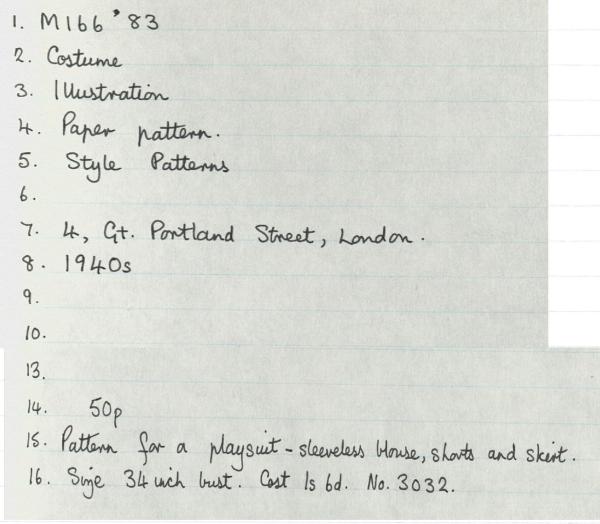 1. M166 '83
2. Costume
3. Illustration
4. Paper pattern.
5. Style Patterns
6.
7. 4, Gt. Portland Street, London.
8. 1940s
9.
10.
13.
14. 50p
15. Pattern for a playsuit - sleeveless blouse, shorts and skirt.
16. Size 34 inch bust. Cost 1s 6d. No. 3032.